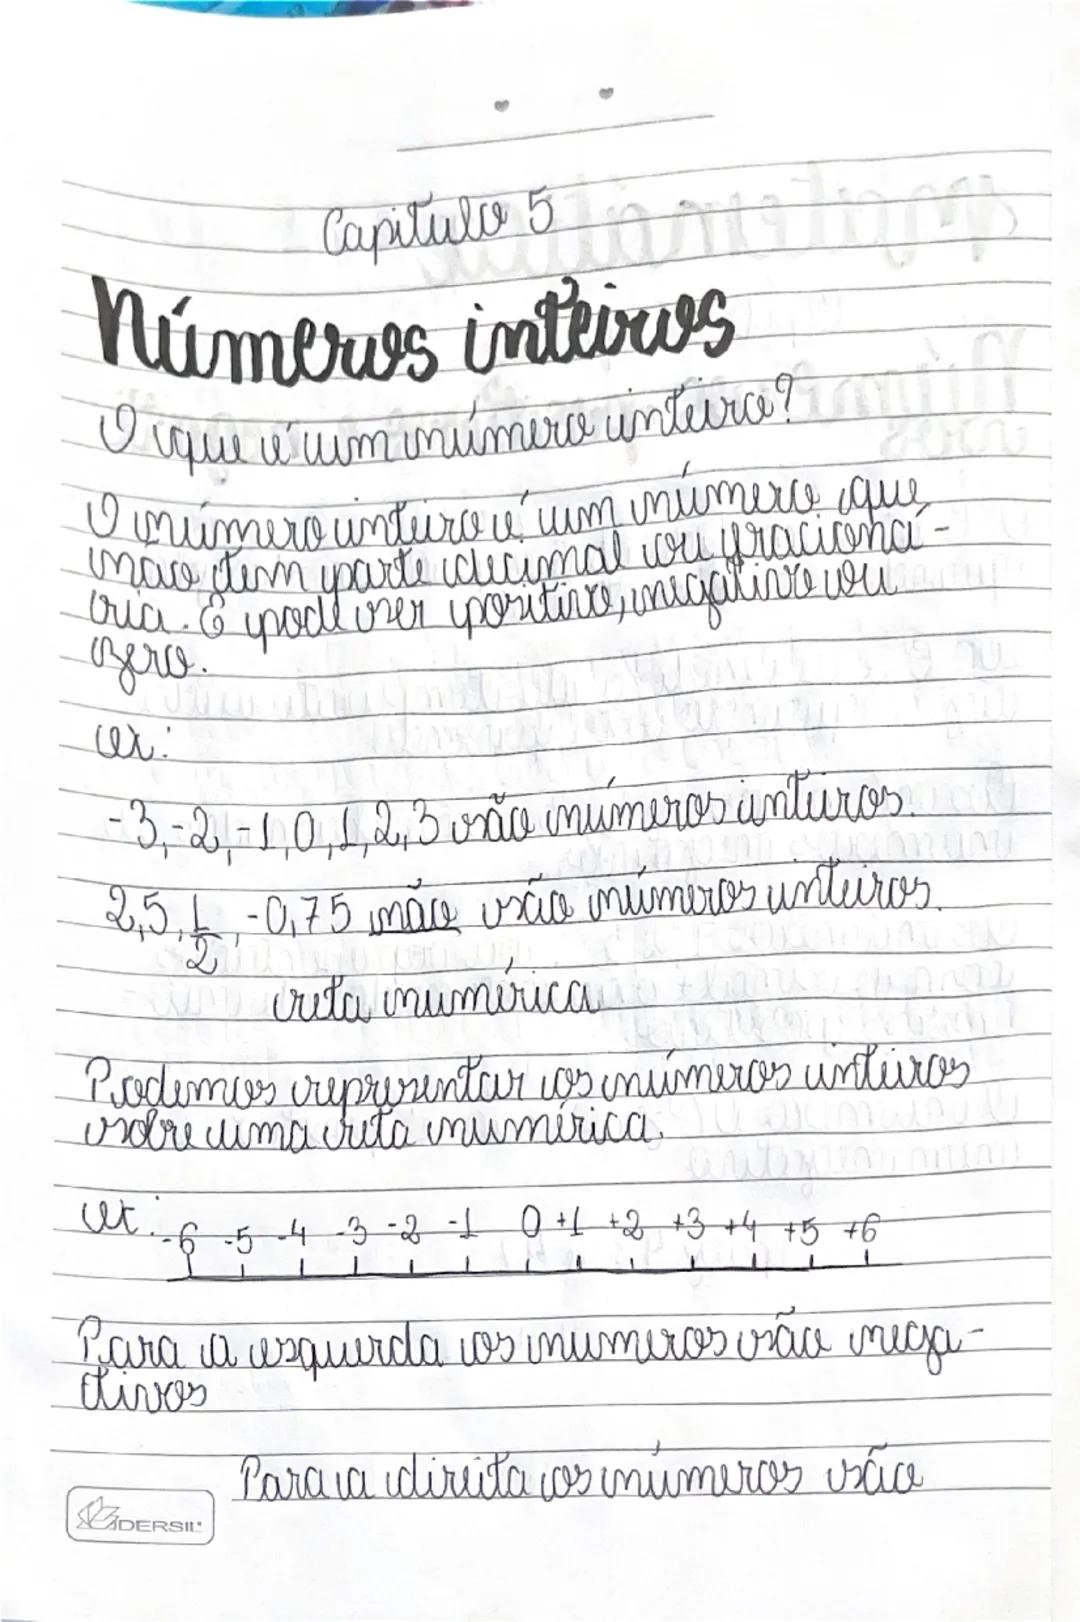 Capitulo 5
Números inteiros
O que é um número inteiro?
O número inteiro é um número que
não tem parte decimal ou fracioná-
ria. E pode ser positivo, negativo ou
zero.
ex:
-3,-2,-1,0,1,2,3 são números inteiros.
2,5, 1/2, -0,75 não são números inteiros.
reta numérica
Podemos representar os números inteiros
sobre uma reta numérica.
ex: -6 -5 -4 -3 -2 -1 0 +1 +2 +3 +4 +5 +6
Para a esquerda os numeros são nega-
tivos
Para a direita os números são
DERSIL